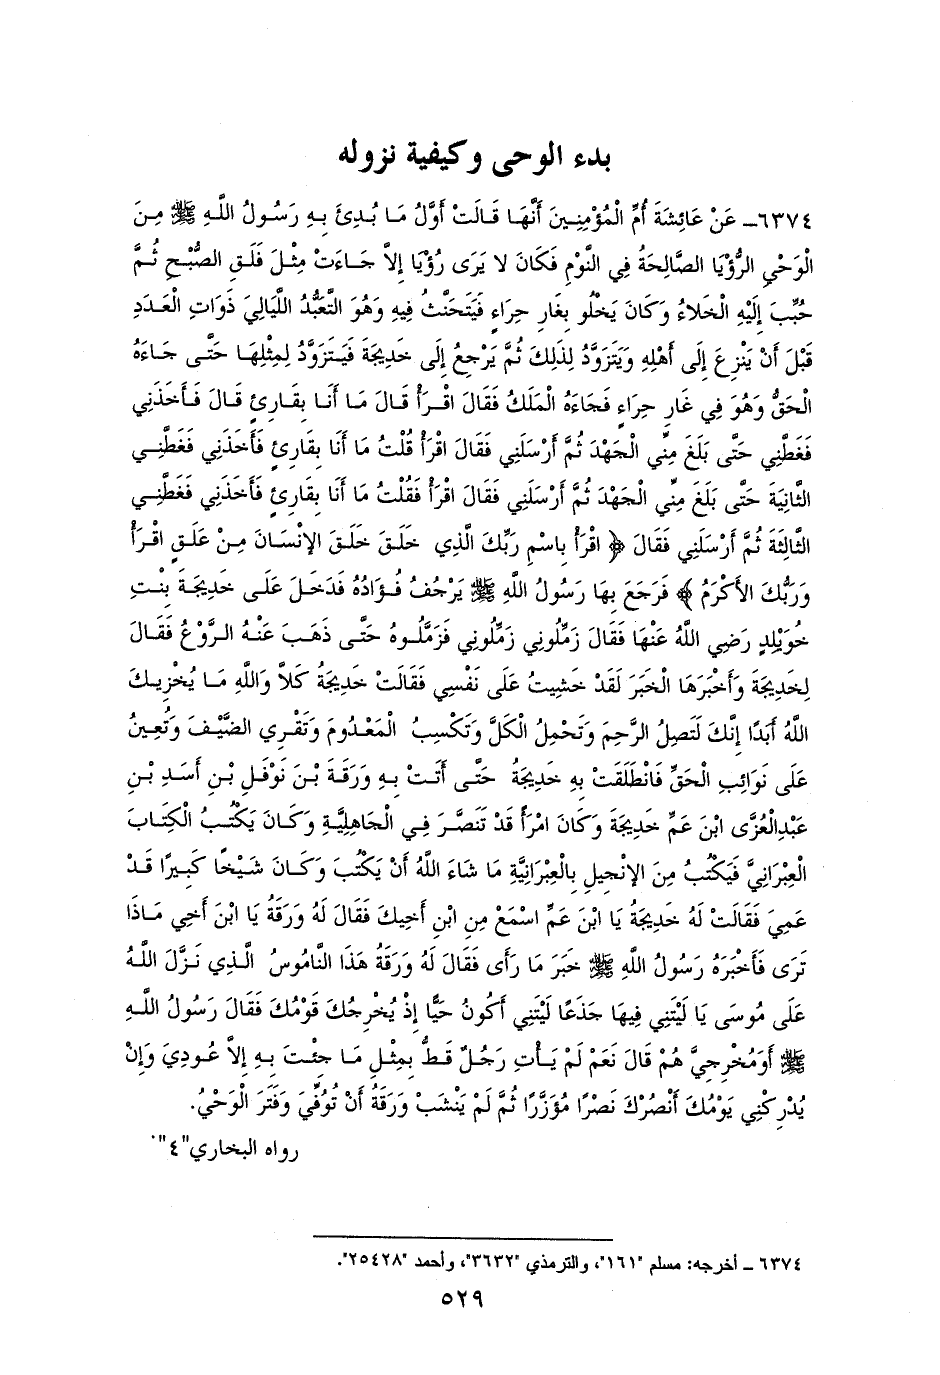 بدء الوحى وكيفية نزوله
٦٣٧٤ـ عَنْ عَائِشَةَ أُمِّ الْمُؤْمِنِينَ أَنَّهَا قَالَتْ أَوَّلُ مَا بُدِئَ بِهِ رَسُولُ اللَّهِ ﷺ مِنَ
الْوَحْيِ الرُّؤْيَا الصَّالِحَةُ فِي النَّوْمِ فَكَانَ لا يَرَى رُؤْيَا إِلاَّ جَاءَتْ مِثْلَ فَلَقِ الصُّبْحِ ثُمَّ
حُبِّبَ إِلَيْهِ الْخَلاءُ وَكَانَ يَخْلُو بِغَارِ حِرَاءٍ فَيَتَحَنَّثُ فِيهِ وَهُوَ التَّعَبُّدُ اللَّيَالِيَ ذَوَاتِ الْعَدَدِ
قَبْلَ أَنْ يَنْزِعَ إِلَى أَهْلِهِ وَيَتَزَوَّدُ لِذَلِكَ ثُمَّ يَرْجِعُ إِلَى خَدِيجَةَ فَيَتَزَوَّدُ لِمِثْلِهَا حَتَّى جَاءَهُ
الْحَقُّ وَهُوَ فِي غَارِ حِرَاءٍ فَجَاءَهُ الْمَلَكُ فَقَالَ اقْرَأْ قَالَ مَا أَنَا بِقَارِئٍ قَالَ فَأَخَذَنِي
فَغَطَّنِي حَتَّى بَلَغَ مِنِّي الْجَهْدَ ثُمَّ أَرْسَلَنِي فَقَالَ اقْرَأْ قُلْتُ مَا أَنَا بِقَارِئٍ فَأَخَذَنِي فَغَطَّنِي
الثَّانِيَةَ حَتَّى بَلَغَ مِنِّي الْجَهْدَ ثُمَّ أَرْسَلَنِي فَقَالَ اقْرَأْ فَقُلْتُ مَا أَنَا بِقَارِئٍ فَأَخَذَنِي فَغَطَّنِي
الثَّالِثَةَ ثُمَّ أَرْسَلَنِي فَقَالَ ﴿ اقْرَأْ بِاسْمِ رَبِّكَ الَّذِي خَلَقَ خَلَقَ الإِنْسَانَ مِنْ عَلَقٍ اقْرَأْ
وَرَبُّكَ الأَكْرَمُ ﴾ فَرَجَعَ بِهَا رَسُولُ اللَّهِ ﷺ يَرْجُفُ فُؤَادُهُ فَدَخَلَ عَلَى خَدِيجَةَ بِنْتِ
خُوَيْلِدٍ رَضِي اللَّهُ عَنْهَا فَقَالَ زَمِّلُونِي زَمِّلُونِي فَزَمَّلُوهُ حَتَّى ذَهَبَ عَنْهُ الرَّوْعُ فَقَالَ
لِخَدِيجَةَ وَأَخْبَرَهَا الْخَبَرَ لَقَدْ خَشِيتُ عَلَى نَفْسِي فَقَالَتْ خَدِيجَةُ كَلاَّ وَاللَّهِ مَا يُخْزِيكَ
اللَّهُ أَبَدًا إِنَّكَ لَتَصِلُ الرَّحِمَ وَتَحْمِلُ الْكَلَّ وَتَكْسِبُ الْمَعْدُومَ وَتَقْرِي الضَّيْفَ وَتُعِينُ
عَلَى نَوَائِبِ الْحَقِّ فَانْطَلَقَتْ بِهِ خَدِيجَةُ حَتَّى أَتَتْ بِهِ وَرَقَةَ بْنَ نَوْفَلِ بْنِ أَسَدِ بْنِ
عَبْدِالْعُزَّى ابْنَ عَمِّ خَدِيجَةَ وَكَانَ امْرَأً قَدْ تَنَصَّرَ فِي الْجَاهِلِيَّةِ وَكَانَ يَكْتُبُ الْكِتَابَ
الْعِبْرَانِيَّ فَيَكْتُبُ مِنَ الإِنْجِيلِ بِالْعِبْرَانِيَّةِ مَا شَاءَ اللَّهُ أَنْ يَكْتُبَ وَكَانَ شَيْخًا كَبِيرًا قَدْ
عَمِيَ فَقَالَتْ لَهُ خَدِيجَةُ يَا ابْنَ عَمِّ اسْمَعْ مِنِ ابْنِ أَخِيكَ فَقَالَ لَهُ وَرَقَةُ يَا ابْنَ أَخِي مَاذَا
تَرَى فَأَخْبَرَهُ رَسُولُ اللَّهِ ﷺ خَبَرَ مَا رَأَى فَقَالَ لَهُ وَرَقَةُ هَذَا النَّامُوسُ الَّذِي نَزَّلَ اللَّهُ
عَلَى مُوسَى يَا لَيْتَنِي فِيهَا جَذَعًا لَيْتَنِي أَكُونُ حَيًّا إِذْ يُخْرِجُكَ قَوْمُكَ فَقَالَ رَسُولُ اللَّهِ
ﷺ أَوَمُخْرِجِيَّ هُمْ قَالَ نَعَمْ لَمْ يَأْتِ رَجُلٌ قَطُّ بِمِثْلِ مَا جِئْتَ بِهِ إِلاَّ عُودِيَ وَإِنْ
يُدْرِكْنِي يَوْمُكَ أَنْصُرْكَ نَصْرًا مُؤَزَّرًا ثُمَّ لَمْ يَنْشَبْ وَرَقَةُ أَنْ تُوُفِّيَ وَفَتَرَ الْوَحْيُ.
رواه البخاري"٤".
٦٣٧٤ ـ أخرجه: مسلم "١٦١"، والترمذي "٣٦٣٢"، وأحمد "٢٥٤٢٨".
٥٢٩